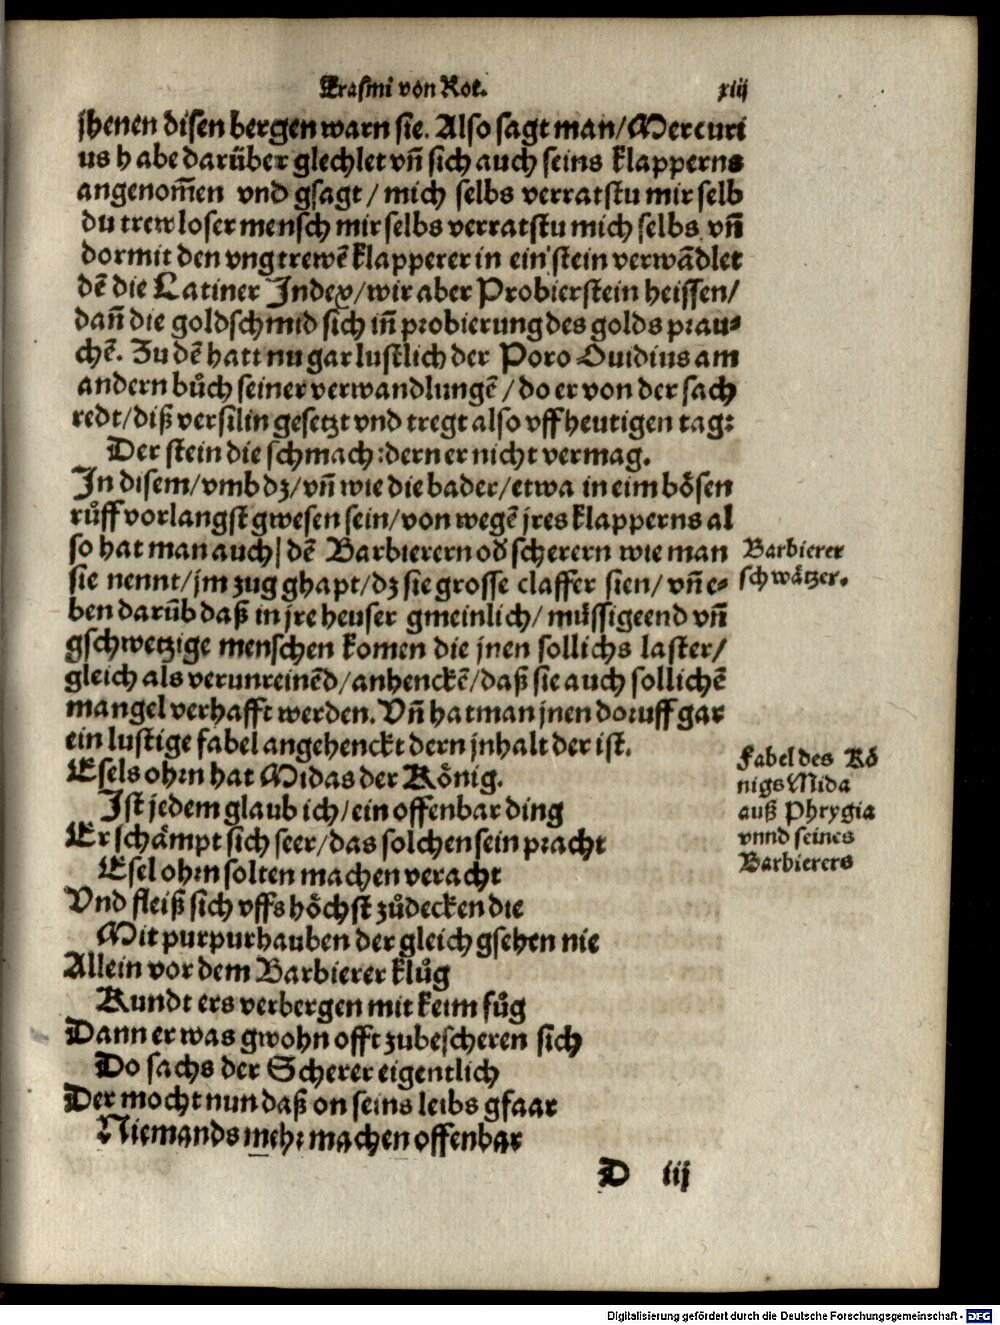 Erasmi von Rot. xiij
jhenen disen bergen warn sie. Also sagt man/Mercuri
us habe darüber glechlet vñ sich auch seins klapperns
angenom̃en vnd gsagt / mich selbs verratstu mir selb
du trewloser mensch mir selbs verratstu mich selbs vñ
dormit den vngtrewẽ klapperer in ein stein verwãdlet
dẽ die Latiner Index/wir aber Probierstein heissen/
dañ die goldschmid sich iñ probierung des golds prau⸗
chẽ. Zu dẽ hatt nu gar lustlich der Poro Ouidius am
andern bůch seiner verwandlungẽ / do er von der sach
redt/diß versilin gesetzt vnd tregt also vff heutigen tag:
Der stein die schmach:dern er nicht vermag.
In disem/vmb dz/vñ wie die bader/etwa in eim bösen
růff vorlangst gwesen sein/von wegẽ jres klapperns al
so hat man auch/ dẽ Barbierern oď scherern wie man
sie nennt/jm zug ghapt/dz sie grosse claffer sien/ vñ e⸗
ben darũb daß in jre heuser gmeinlich/ müssigeend vñ
gschwetzige menschen komen die jnen sollichs laster/
gleich als verunreinẽd/anhenckẽ/daß sie auch sollichẽ
mangel verhafft werden. Vñ hat man jnen doruff gar
ein lustige fabel angehenckt dern jnhalt der ist.
Barbierer
schwätzer.
Esels ohrn hat Midas der König.
Ist jedem glaub ich/ein offenbar ding
Er schämpt sich seer/das solchen sein pracht
Esel ohrn solten machen veracht
Vnd fleiß sich vffs höchst zůdecken die
Mit purpurhauben der gleich gsehen nie
Allein vor dem Barbierer klůg
Kundt ers verbergen mit keim fůg
Dann er was gwohn offt zubescheren sich
Do sachs der Scherer eigentlich
Der mocht nun daß on seins leibs gfaar
Niemands mehr machen offenbar
Fabel des Kö
nigs Mida
auß Phrygia
vnnd seines
Barbierers
D iij
Digitalisierung gefördert durch die Deutsche Forschungsgemeinschaft - DFG